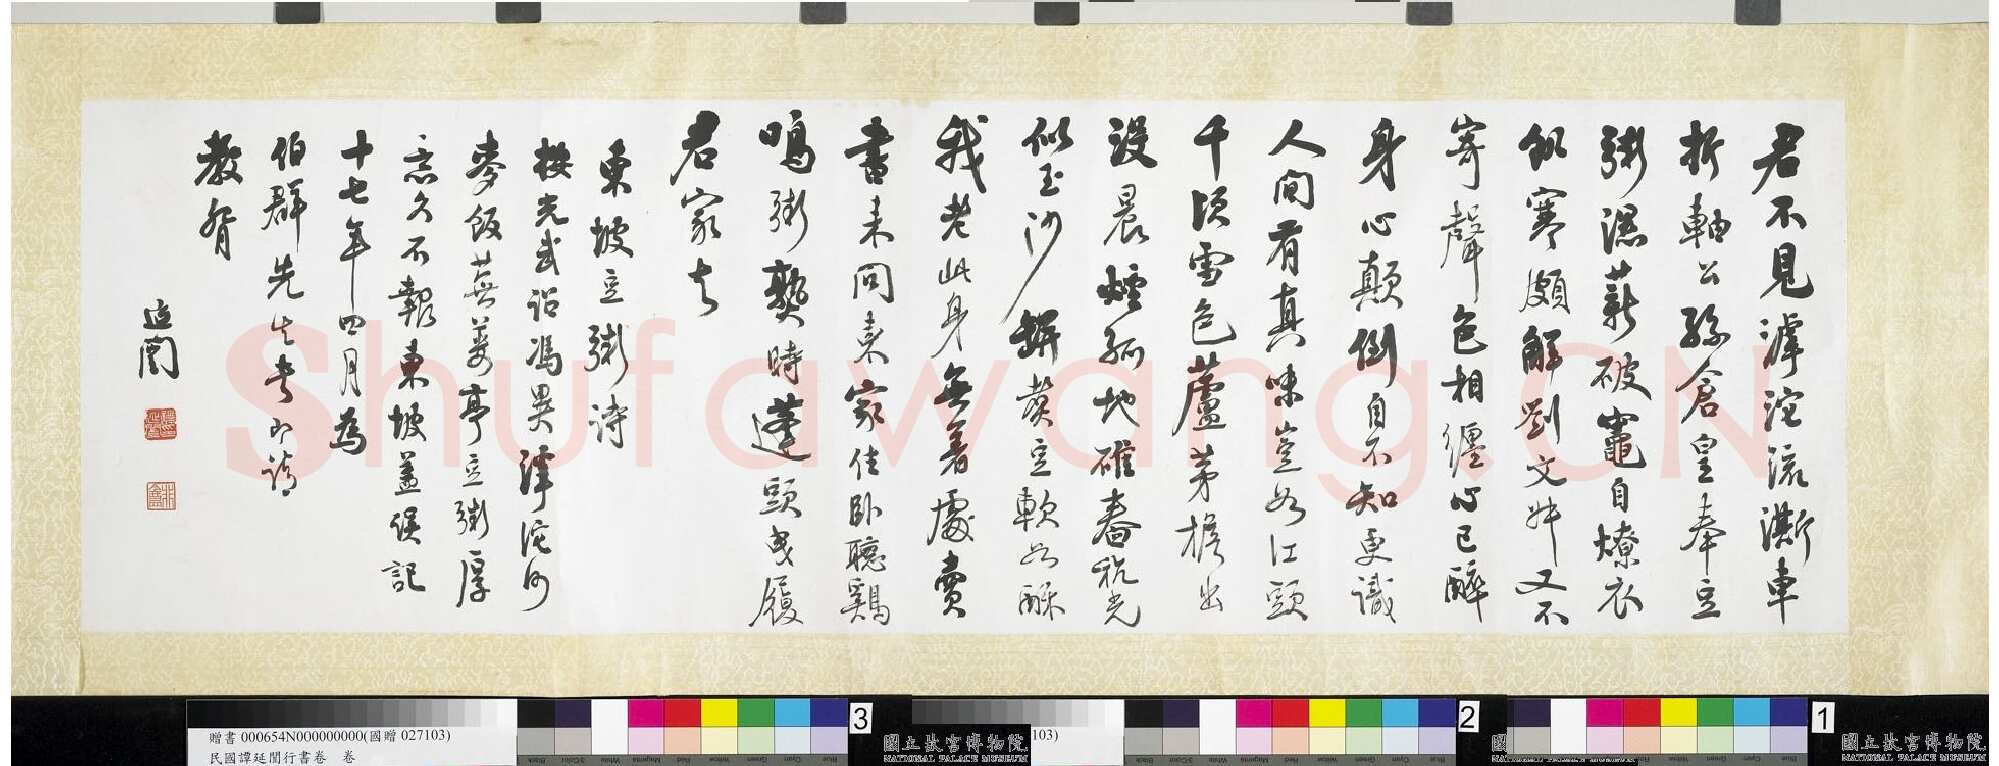 君不見滹沱流澌車
折軸公孫倉皇奉豆
粥濕薪破竈自燎衣
飢寒頗解劉文叔又不
寄聲色相纏心已醉
身心顛倒自不知更識
人間有真味豈如江頭
千頃雪色蘆茅檐出
沒晨煙孤地碓舂秔光
似玉沙缾煑豆軟如酥
我老此身無著處賣
書來問東家住臥聽鷄
鳴粥熟時蓬頭曳履
君家去
東坡豆粥詩
按光武詔馮異滹沱河
麥飯蕪蔞亭豆粥厚
意久不報東坡蓋誤記
十七年四月為
伯群先生書即請
教督
延闓
Shufawang.CN
3
2
1
贈書 000654N000000000(國贈 027103)
民國譚延闓行書卷 卷
103)
國立故宮博物院
NATIONAL PALACE MUSEUM
國立故宮博物院
NATIONAL PALACE MUSEUM